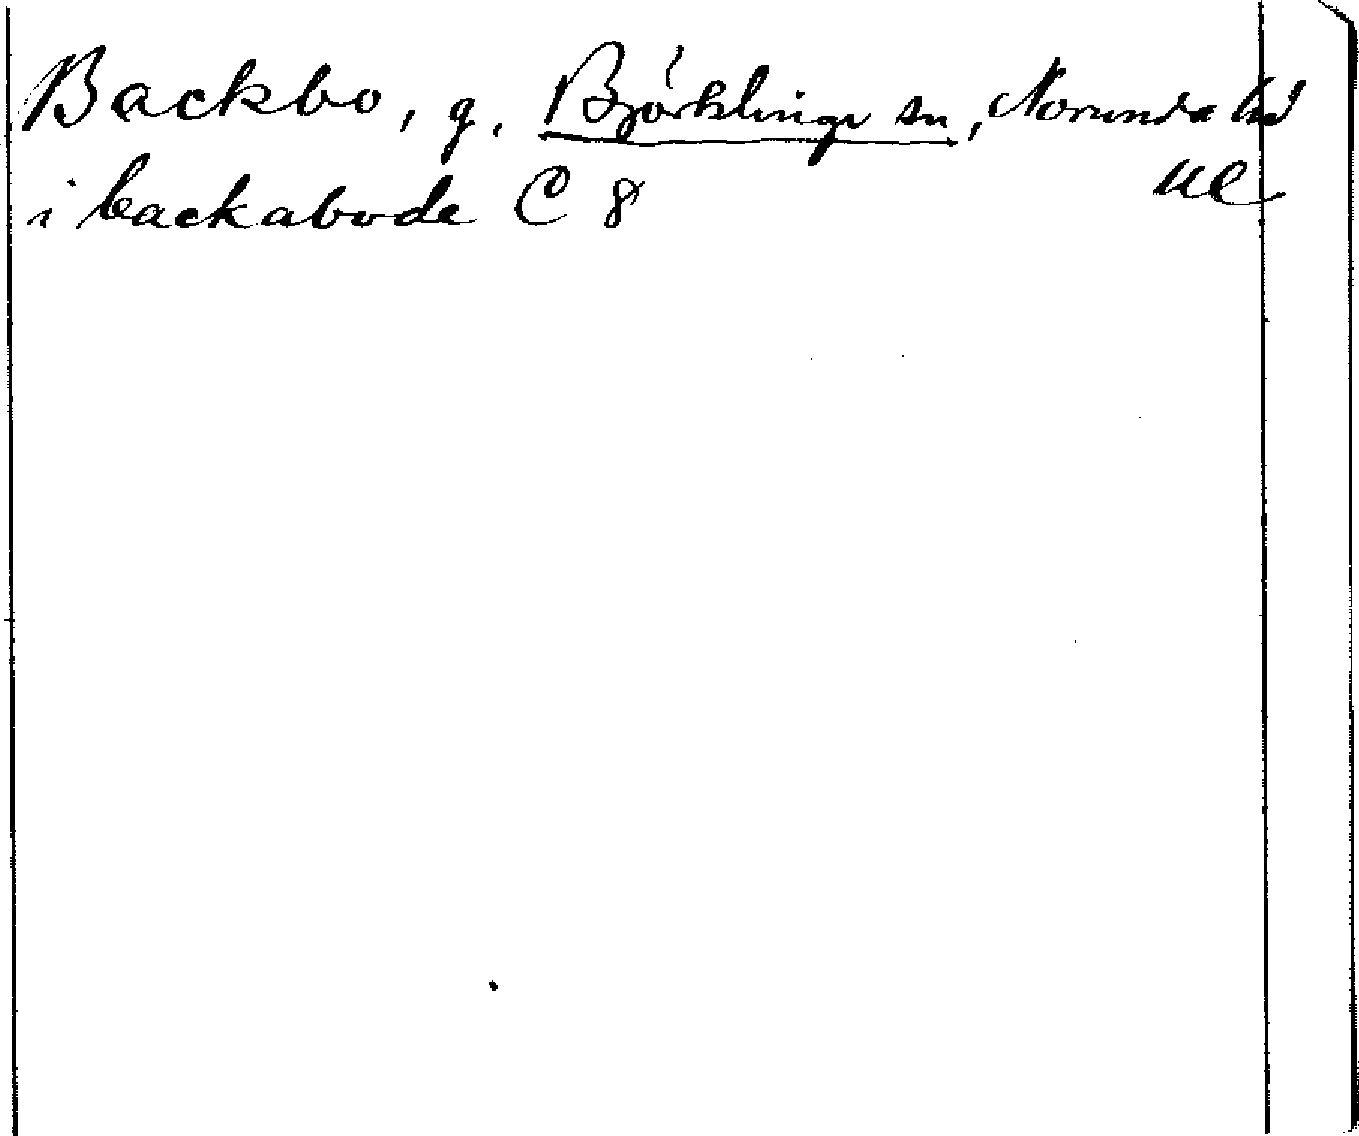 Backbo, g. Björklinge sn, Norunda hd
i backabode C 8 Ul